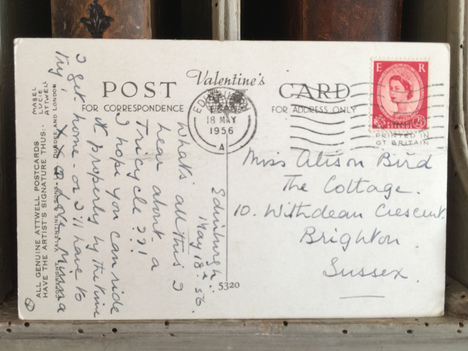 POST Valentine's CARD
FOR CORRESPONDENCE
FOR ADDRESS ONLY
EDINBURGH
18 MAY
1956
A
E R
PRINTED IN
GT BRITAIN
Miss Alison Bird
The Cottage.
10. Withdean Crescent
Brighton.
Sussex.
5320
Edinburgh.
May 18th 56.
What's all this I
hear about a
Tricycle ??!
I hope you can ride
it properly by the time
I get home - or I'll have to
try!
MABEL
LUCIE
ATTWELL
ALL GENUINE ATTWELL POSTCARDS
HAVE THE ARTIST'S SIGNATURE THUS:-
AND LONDON